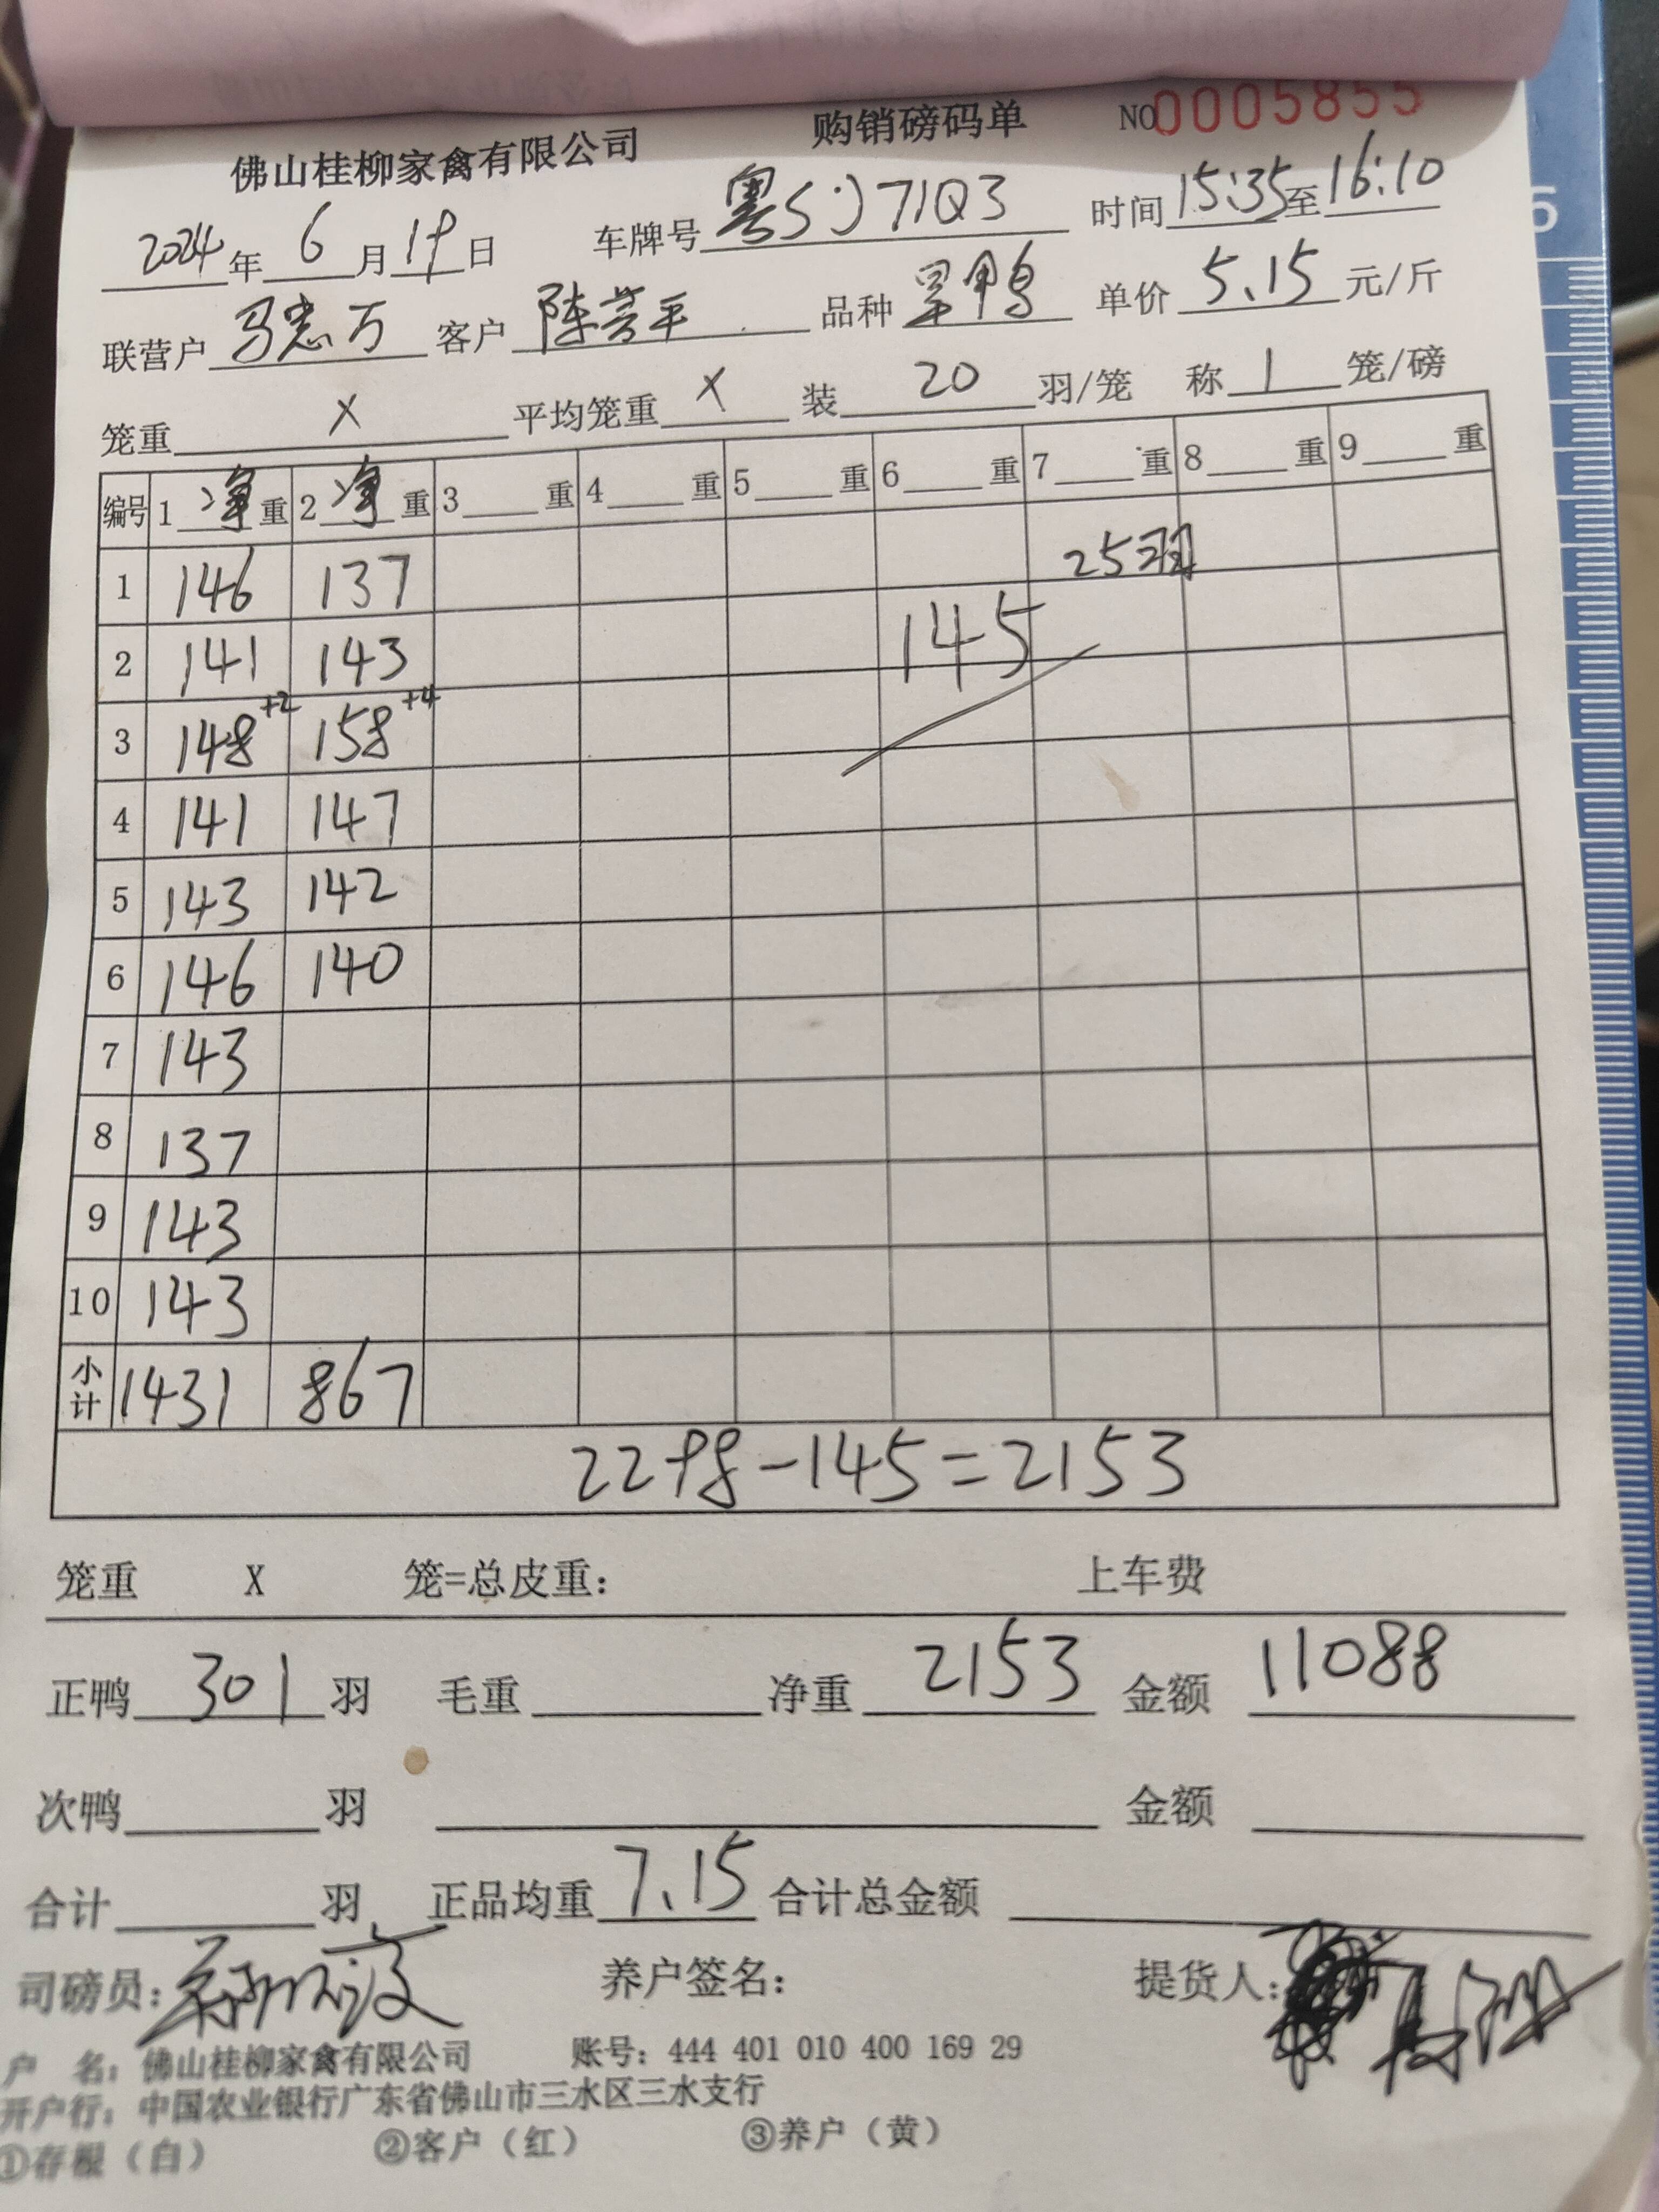 购销磅码单 NO0005855
佛山桂柳家禽有限公司
2024年6月19日 车牌号粤S0771Q3 时间15:35至16:10
联营户 冯志万 客户 陈芳平 品种 旱鸭 单价 5.15 元/斤
笼重 X 平均笼重 X 装 20 羽/笼 称 1 笼/磅
编号 1 净 重 2 净 重 3 重 4 重 5 重 6 重 7 重 8 重 9 重
1 146 137 25羽
2 141 143 145
3 148+2 158+4
4 141 147
5 143 142
6 146 140
7 143
8 137
9 143
10 143
小计 1431 867
2298-145=2153
笼重 X 笼=总皮重: 上车费
正鸭 301 羽 毛重 净重 2153 金额 11088
次鸭 羽 金额
合计 羽 正品均重 7.15 合计总金额
司磅员: 养户签名: 提货人:
户 名: 佛山桂柳家禽有限公司 账号: 444 401 010 400 169 29
开户行: 中国农业银行广东省佛山市三水区三水支行
①存根（白） ②客户（红） ③养户（黄）
6